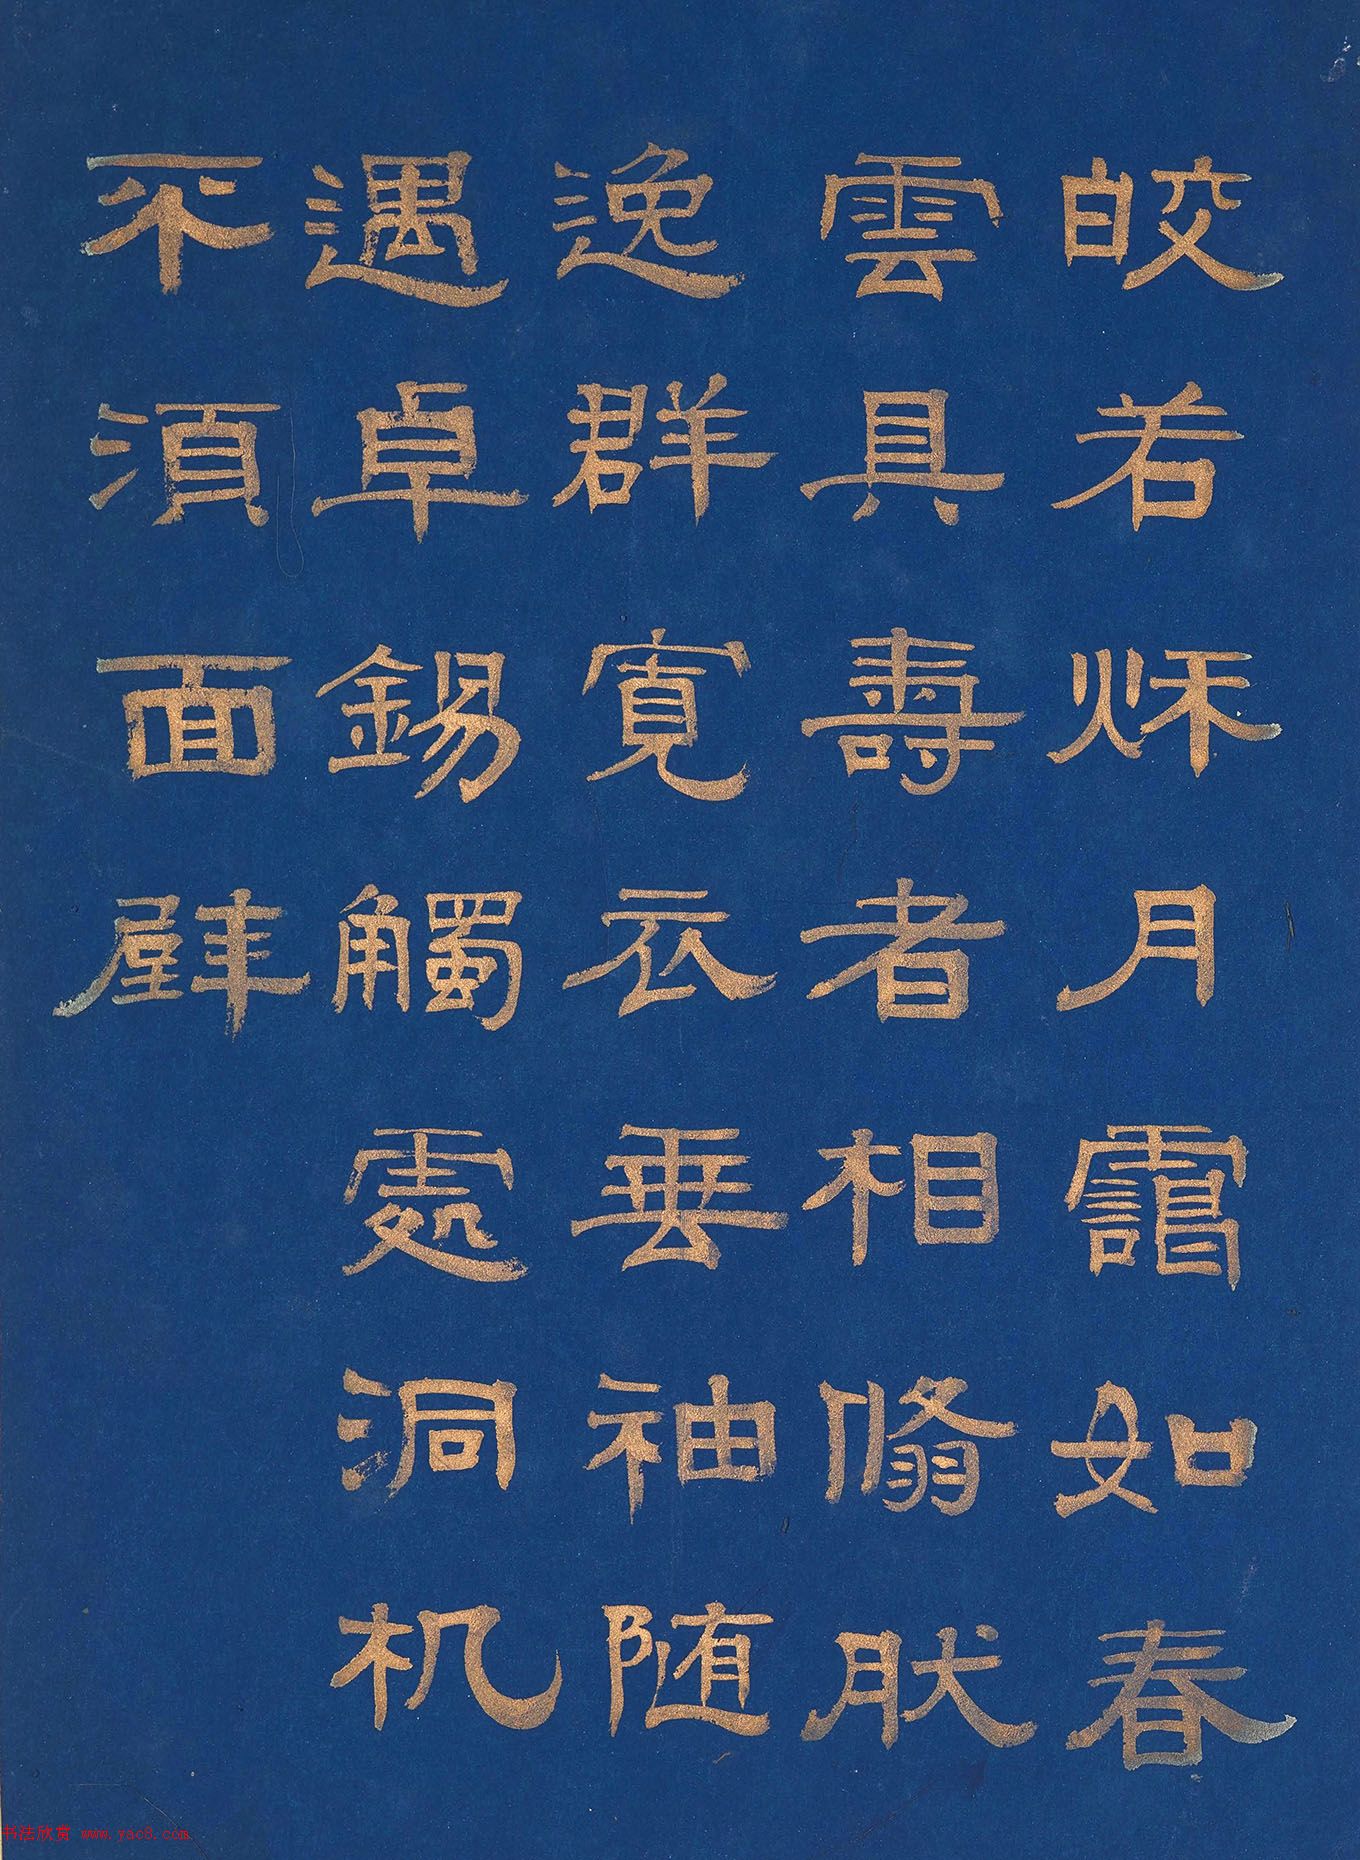 皎若秌月靄如春
雲具壽者相翛肰
逸群寬衣垂袖随
遇卓錫觸處洞机
不湏面壁
书法欣赏 www.yac8.com